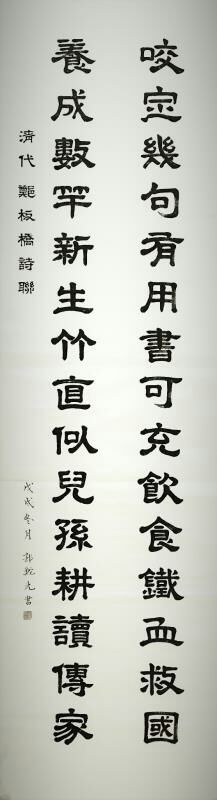 咬定幾句有用書可充飲食鐵血救國
養成數竿新生竹直似兒孫耕讀傳家
清代 鄭板橋詩聯
戊戌冬月 郭乾元書